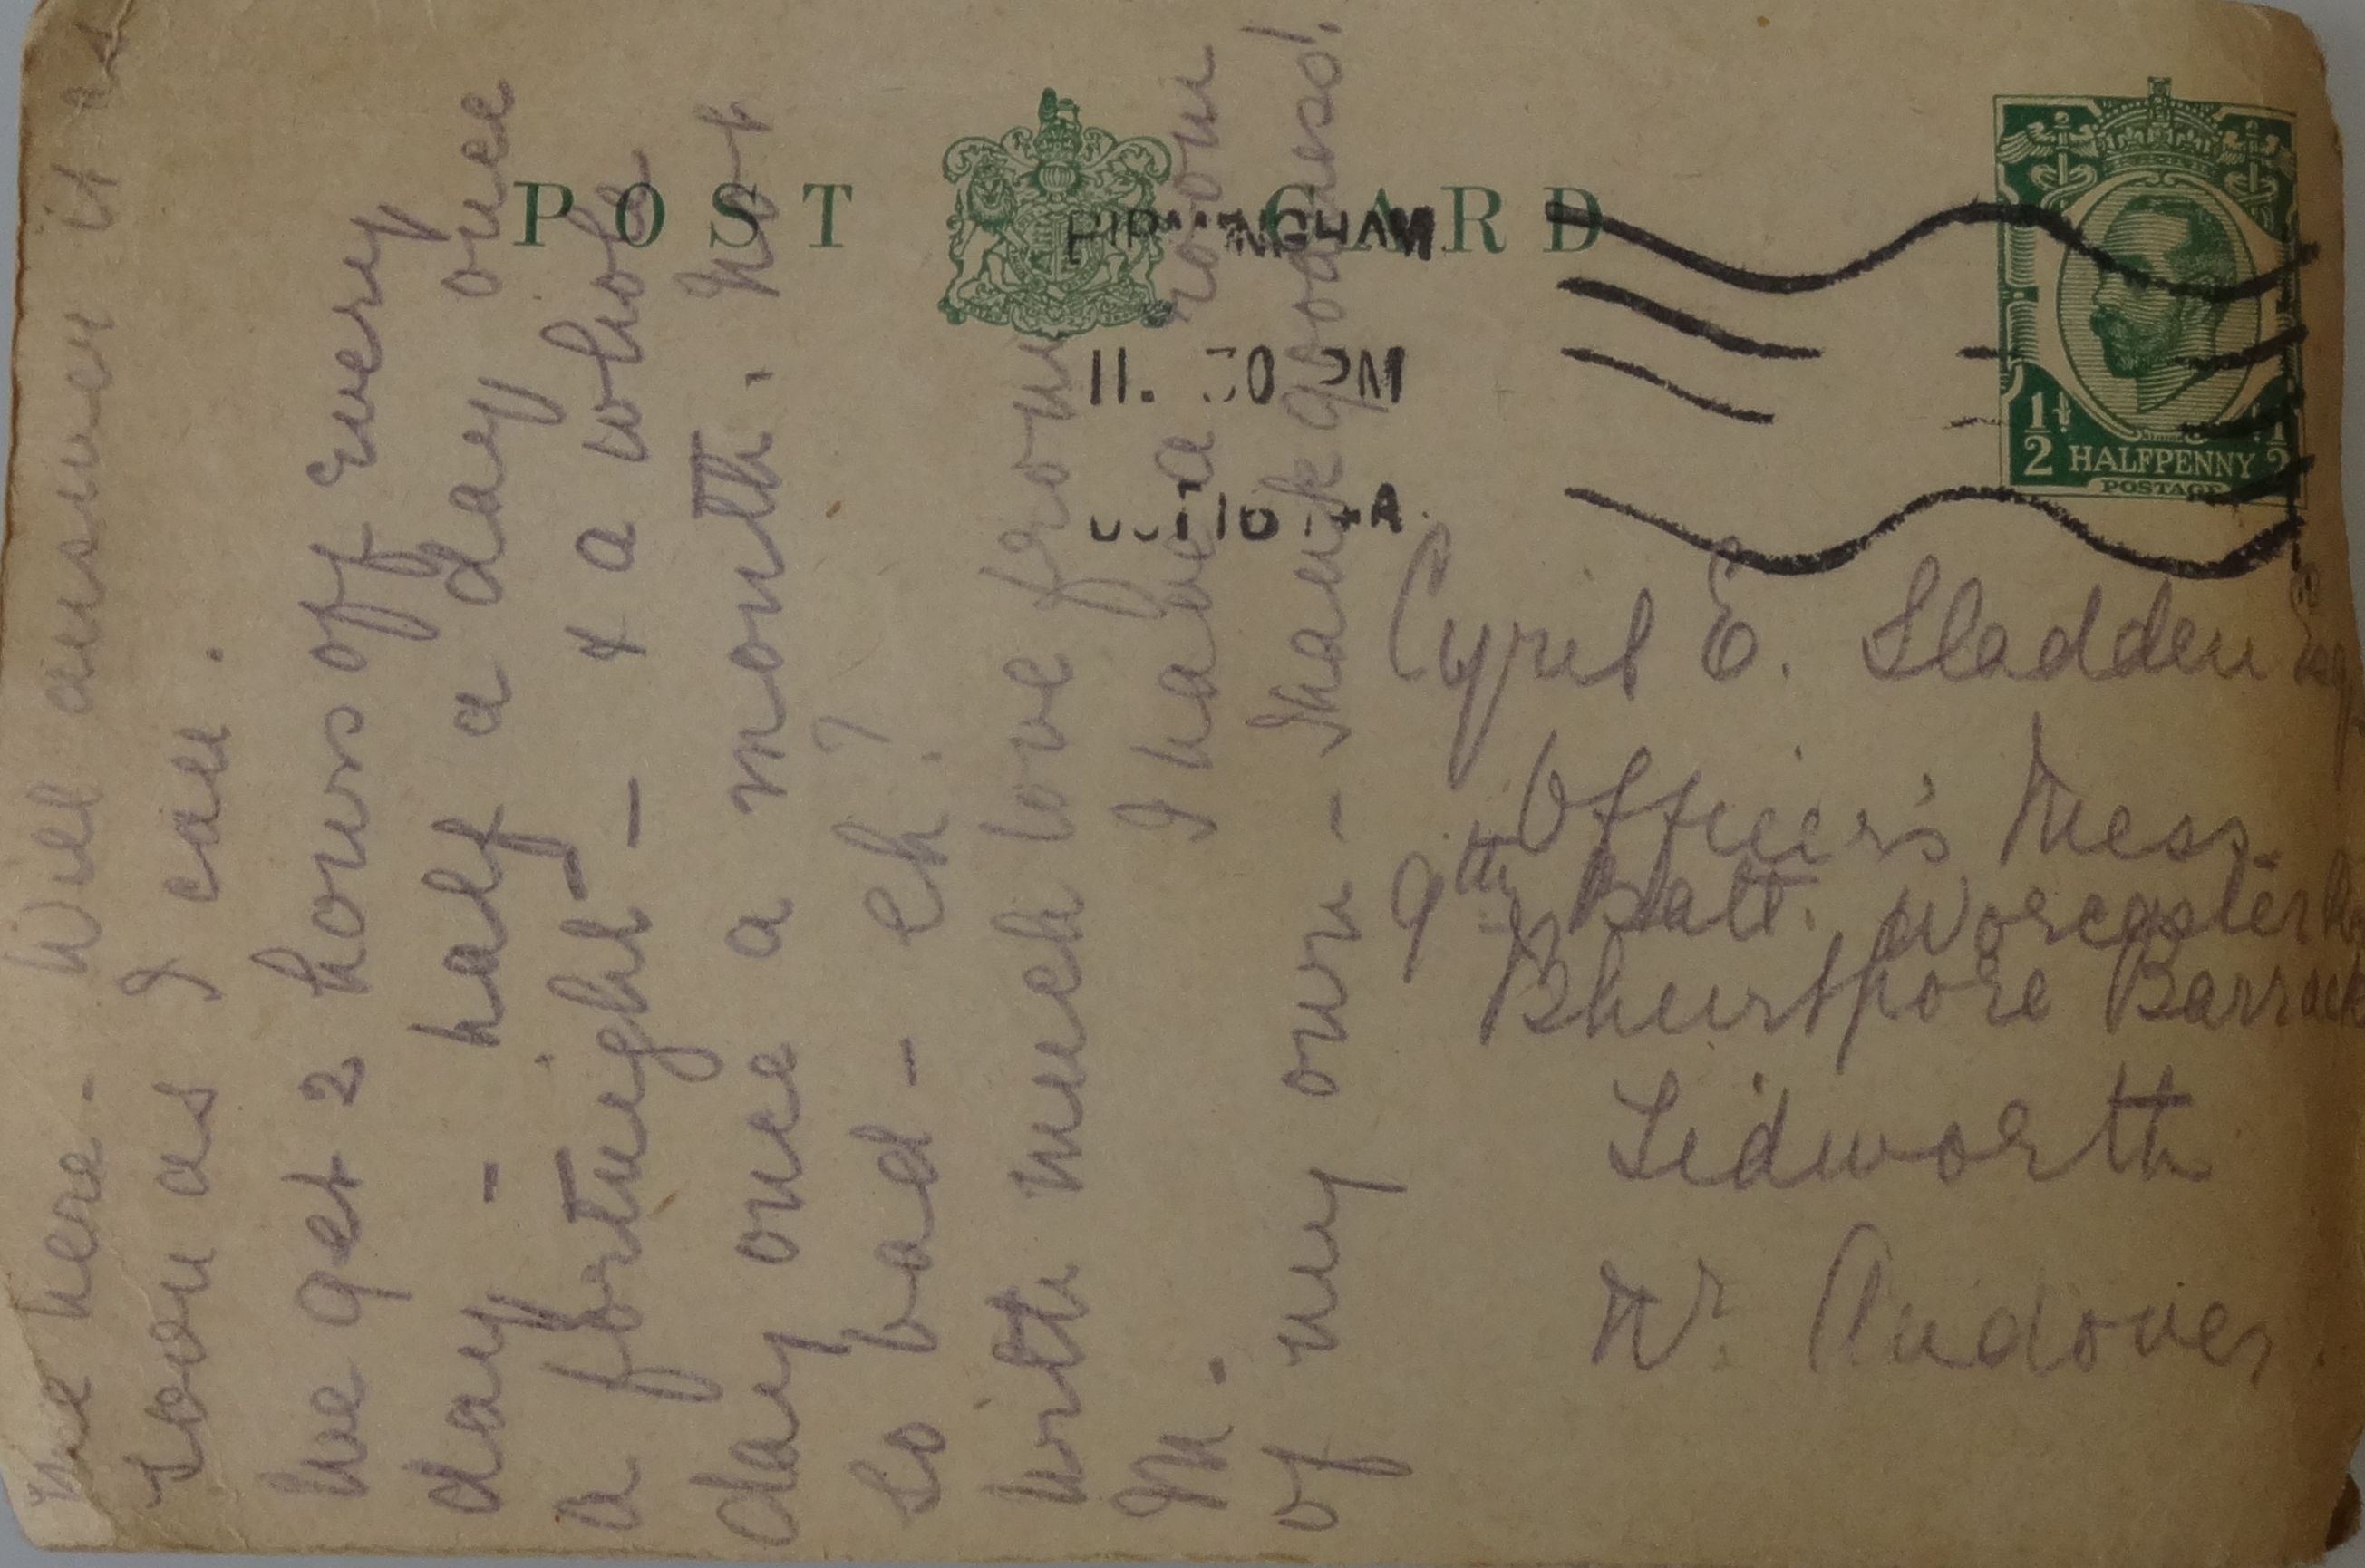 me here - Will answer it as
soon as I can.
We get 2 hours off every
day - half a day once
a fortnight - & a whole
day once a month. Not
so bad - eh?
With much love from
M. I have a room
of my own - Thank goodness!
POST CARD
BIRMINGHAM
11. 30 PM
OCT 16 14
1/2 HALFPENNY 1/2
POSTAGE
Cyril E. Sladden Esq.
Officer's Mess
9th Batt. Worcesters
Bhurtpore Barracks
Tidworth
Nr. Andover.